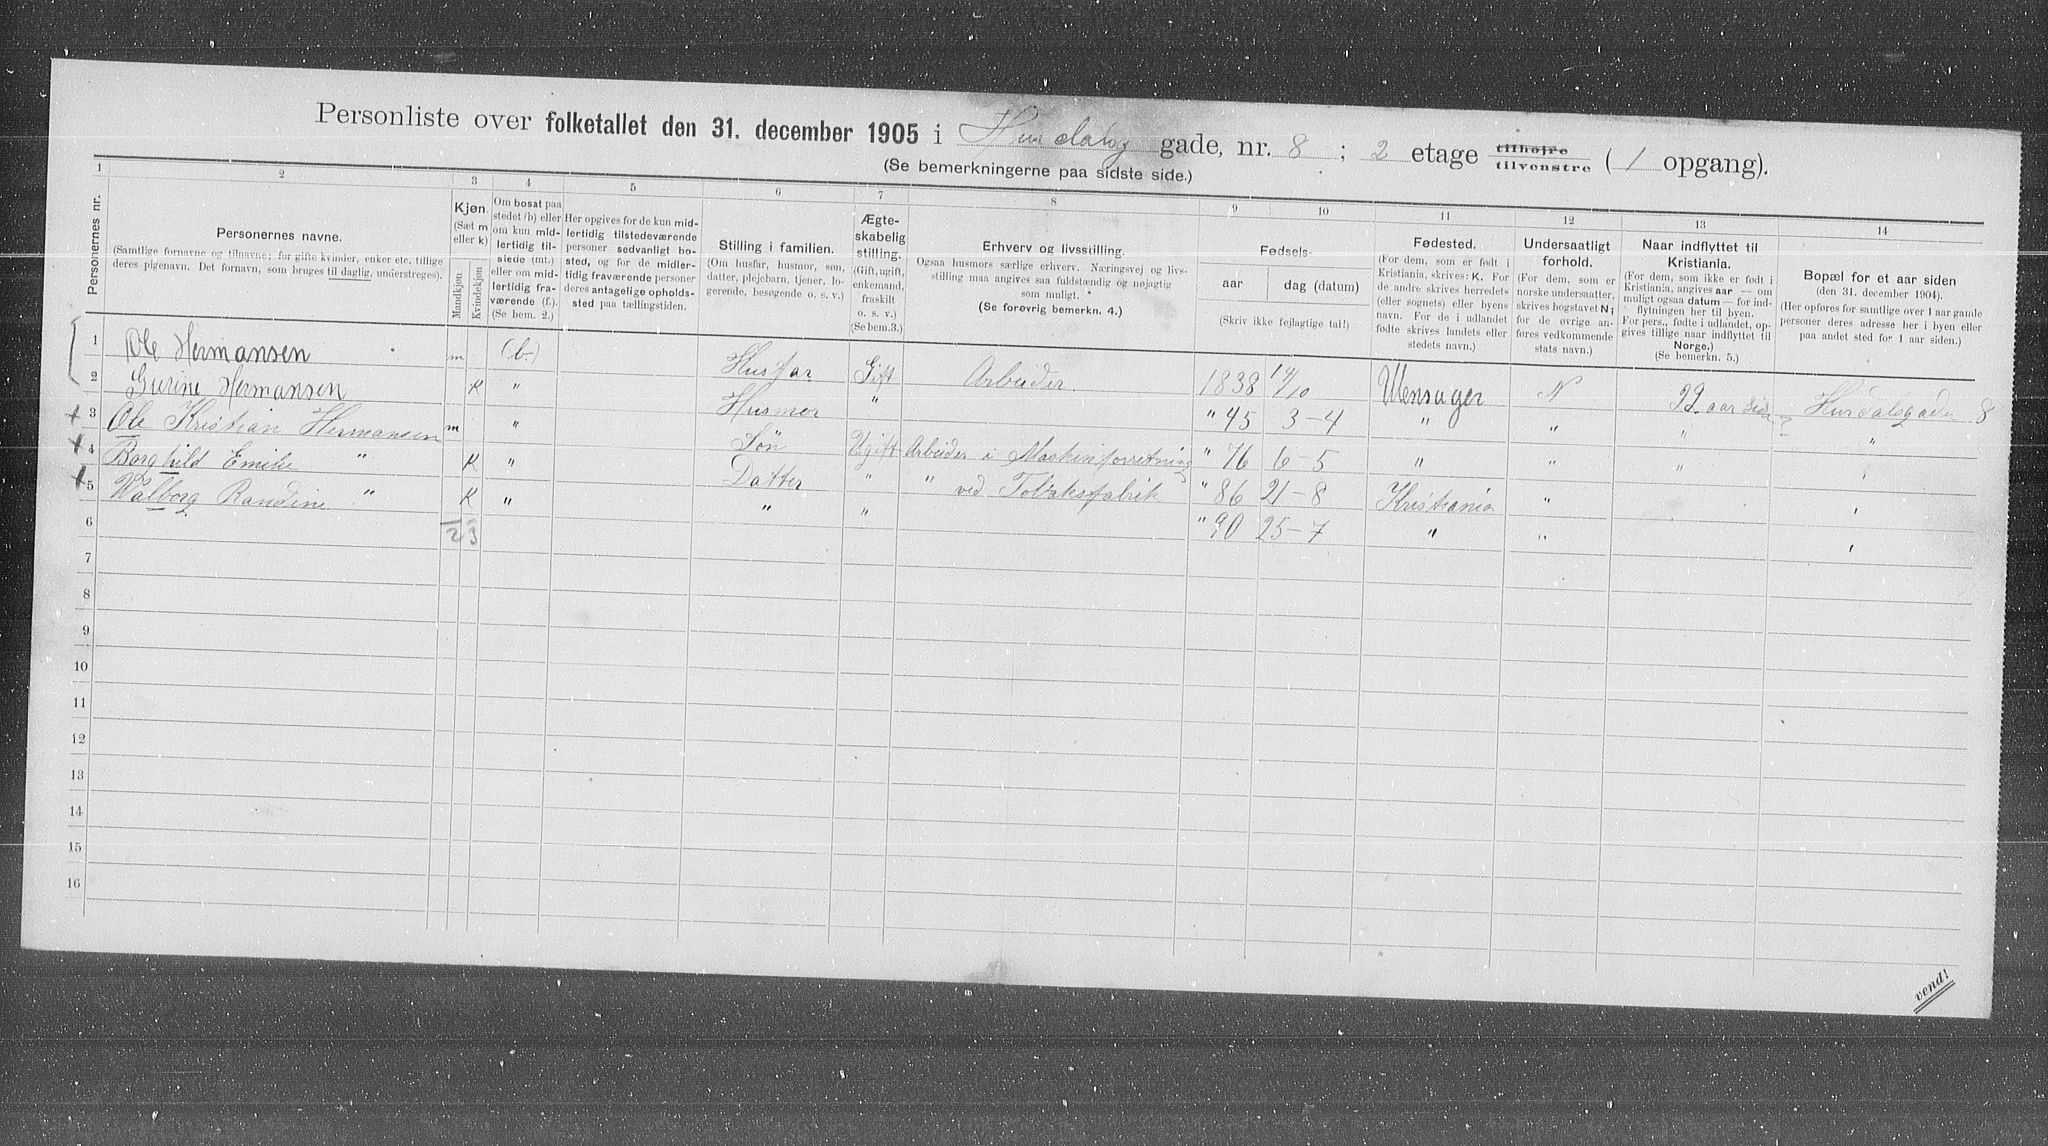 Personliste over folketallet den 31. december 1905 i Hurdals gade, nr. 8 ; 2 etage tilhøjre tilvenstre ( 1 opgang).
(Se bemerkningerne paa sidste side.)
1 2 3 4 5 6 7 8 9 10 11 12 13 14
Personernes nr.
Personernes navne.
(Samtlige fornavne og tilnavne; for gifte kvinder, enker etc. tillige deres pigenavn. Det fornavn, som bruges til daglig, understreges).
Kjøn.
(Sæt m eller k)
Mandkjøn
Kvindekjøn
Om bosat paa stedet (b) eller om kun midlertidig tilstede (mt.) eller om midlertidig fraværende (f.). (Se bem. 2.)
Her opgives for de kun midlertidig tilstedeværende personer sedvanligt bosted, og for de midlertidig fraværende personer deres antagelige opholdssted paa tællingstiden.
Stilling i familien.
(Om husfar, husmor, søn, datter, plejebarn, tjener, logerende, besøgende o. s. v.)
Ægteskabelig stilling.
(Gift, ugift, enkemand, fraskilt o. s. v.)
(Se bem. 3.)
Erhverv og livsstilling.
Ogsaa husmors særlige erhverv. Næringsvej og livsstilling maa angives saa fuldstændig og nøjagtig som muligt.
(Se forøvrig bemerkn. 4.)
Fødsels-
aar
dag (datum)
(Skriv ikke fejlagtige tal!)
Fødested.
(For dem, som er født i Kristiania, skrives: K. For de andre skrives herredets (eller sognets) eller byens navn. For de i udlandet fødte skrives landets eller stedets navn.)
Undersaatligt forhold.
(For dem, som er norske undersaatter, skrives bogstavet N; for de øvrige anføres vedkommende stats navn.)
Naar indflyttet til Kristiania.
(For dem, som ikke er født i Kristiania, angives aar — om muligt ogsaa datum — for indflytningen her til byen. For pers., fødte i udlandet, opgives tillige naar indflyttet til Norge.)
(Se bemerkn. 5.)
Bopæl for et aar siden
(den 31. december 1904).
(Her opføres for samtlige over 1 aar gamle personer deres adresse her i byen eller paa andet sted for 1 aar siden.)
1 Ole Hermansen m (b.) Husfar Gift Arbeider 1838 14/10 Ullensager N 22 aar siden Hurdalsgaden 8
2 Gurine Hermansen K " Husmor " " 45 3-4 " " " "
3 Ole Kristian Hermansen m " Søn Ugift Arbeider i Maskinforretning " 76 6-5 " " " "
4 Borghild Emilie " K " Datter " " ved Tobaksfabrik " 86 21-8 Kristiania " "
5 Walborg Randine " K " " " " 90 25-7 " " "
6 2 3
7
8
9
10
11
12
13
14
15
16
vend!